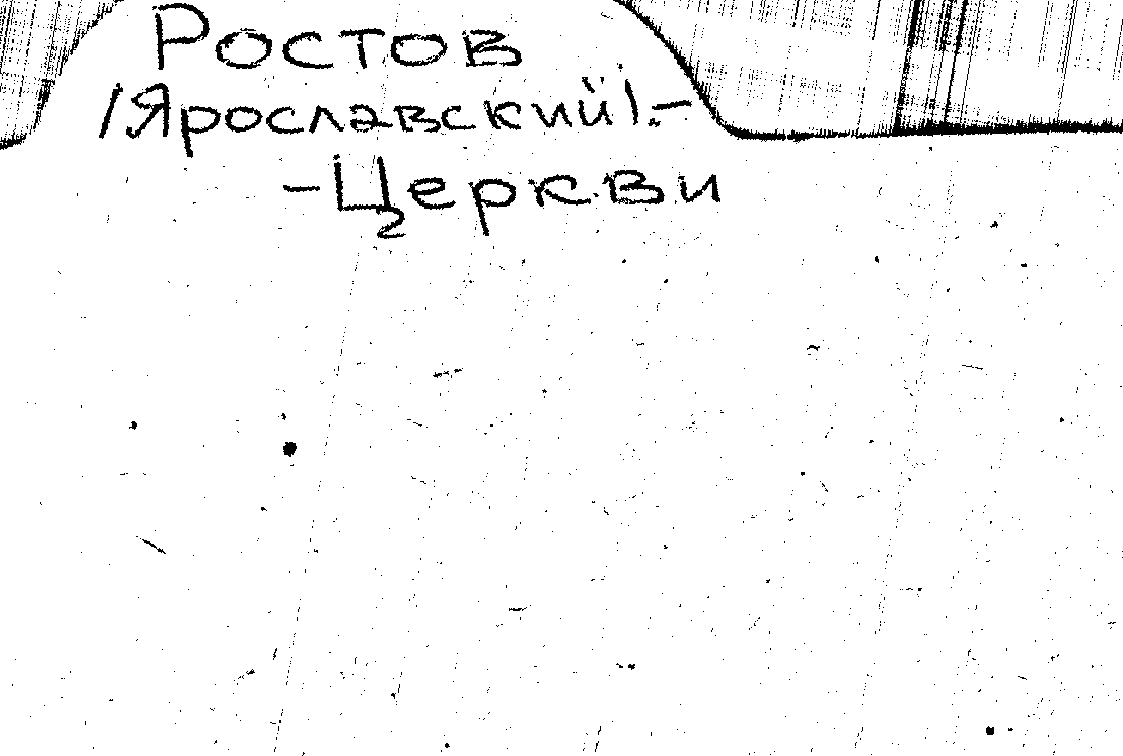 Ростов
/Ярославский/.-
-Церкви